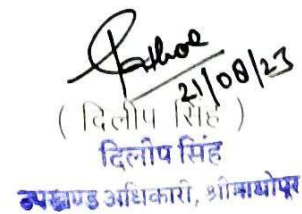 21/08/23
( दिलीप सिंह )
दिलीप सिंह
उपखण्ड अधिकारी, श्रीमाधोपुर